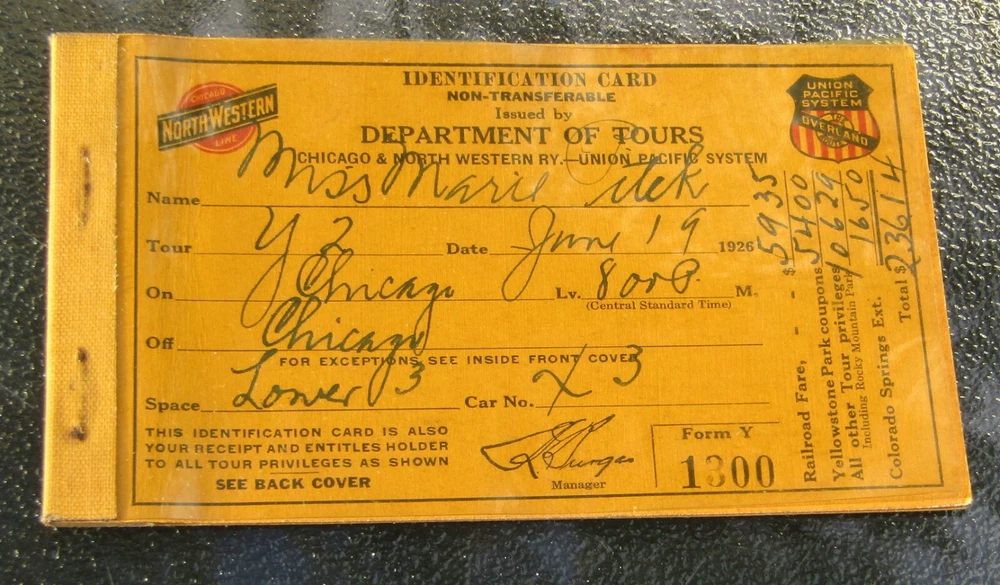 IDENTIFICATION CARD
NON-TRANSFERABLE
Issued by
DEPARTMENT OF TOURS
CHICAGO & NORTH WESTERN RY.—UNION PACIFIC SYSTEM
CHICAGO
NORTH WESTERN
LINE
UNION
PACIFIC
SYSTEM
OVERLAND
Name Miss Marie
Tour Y 2 Date June 19 1926
On Chicago Lv. 8 00 P. M.
(Central Standard Time)
Off Chicago
FOR EXCEPTIONS, SEE INSIDE FRONT COVER
Space Lower 3 Car No. X 3
THIS IDENTIFICATION CARD IS ALSO
YOUR RECEIPT AND ENTITLES HOLDER
TO ALL TOUR PRIVILEGES AS SHOWN
SEE BACK COVER
Manager
Form Y
1300
Railroad Fare, - - $ 59 35
Yellowstone Park coupons 54 00
All other Tour privileges 106 29
Including Rocky Mountain Park
Colorado Springs Ext. 16 50
Total $ 236 14